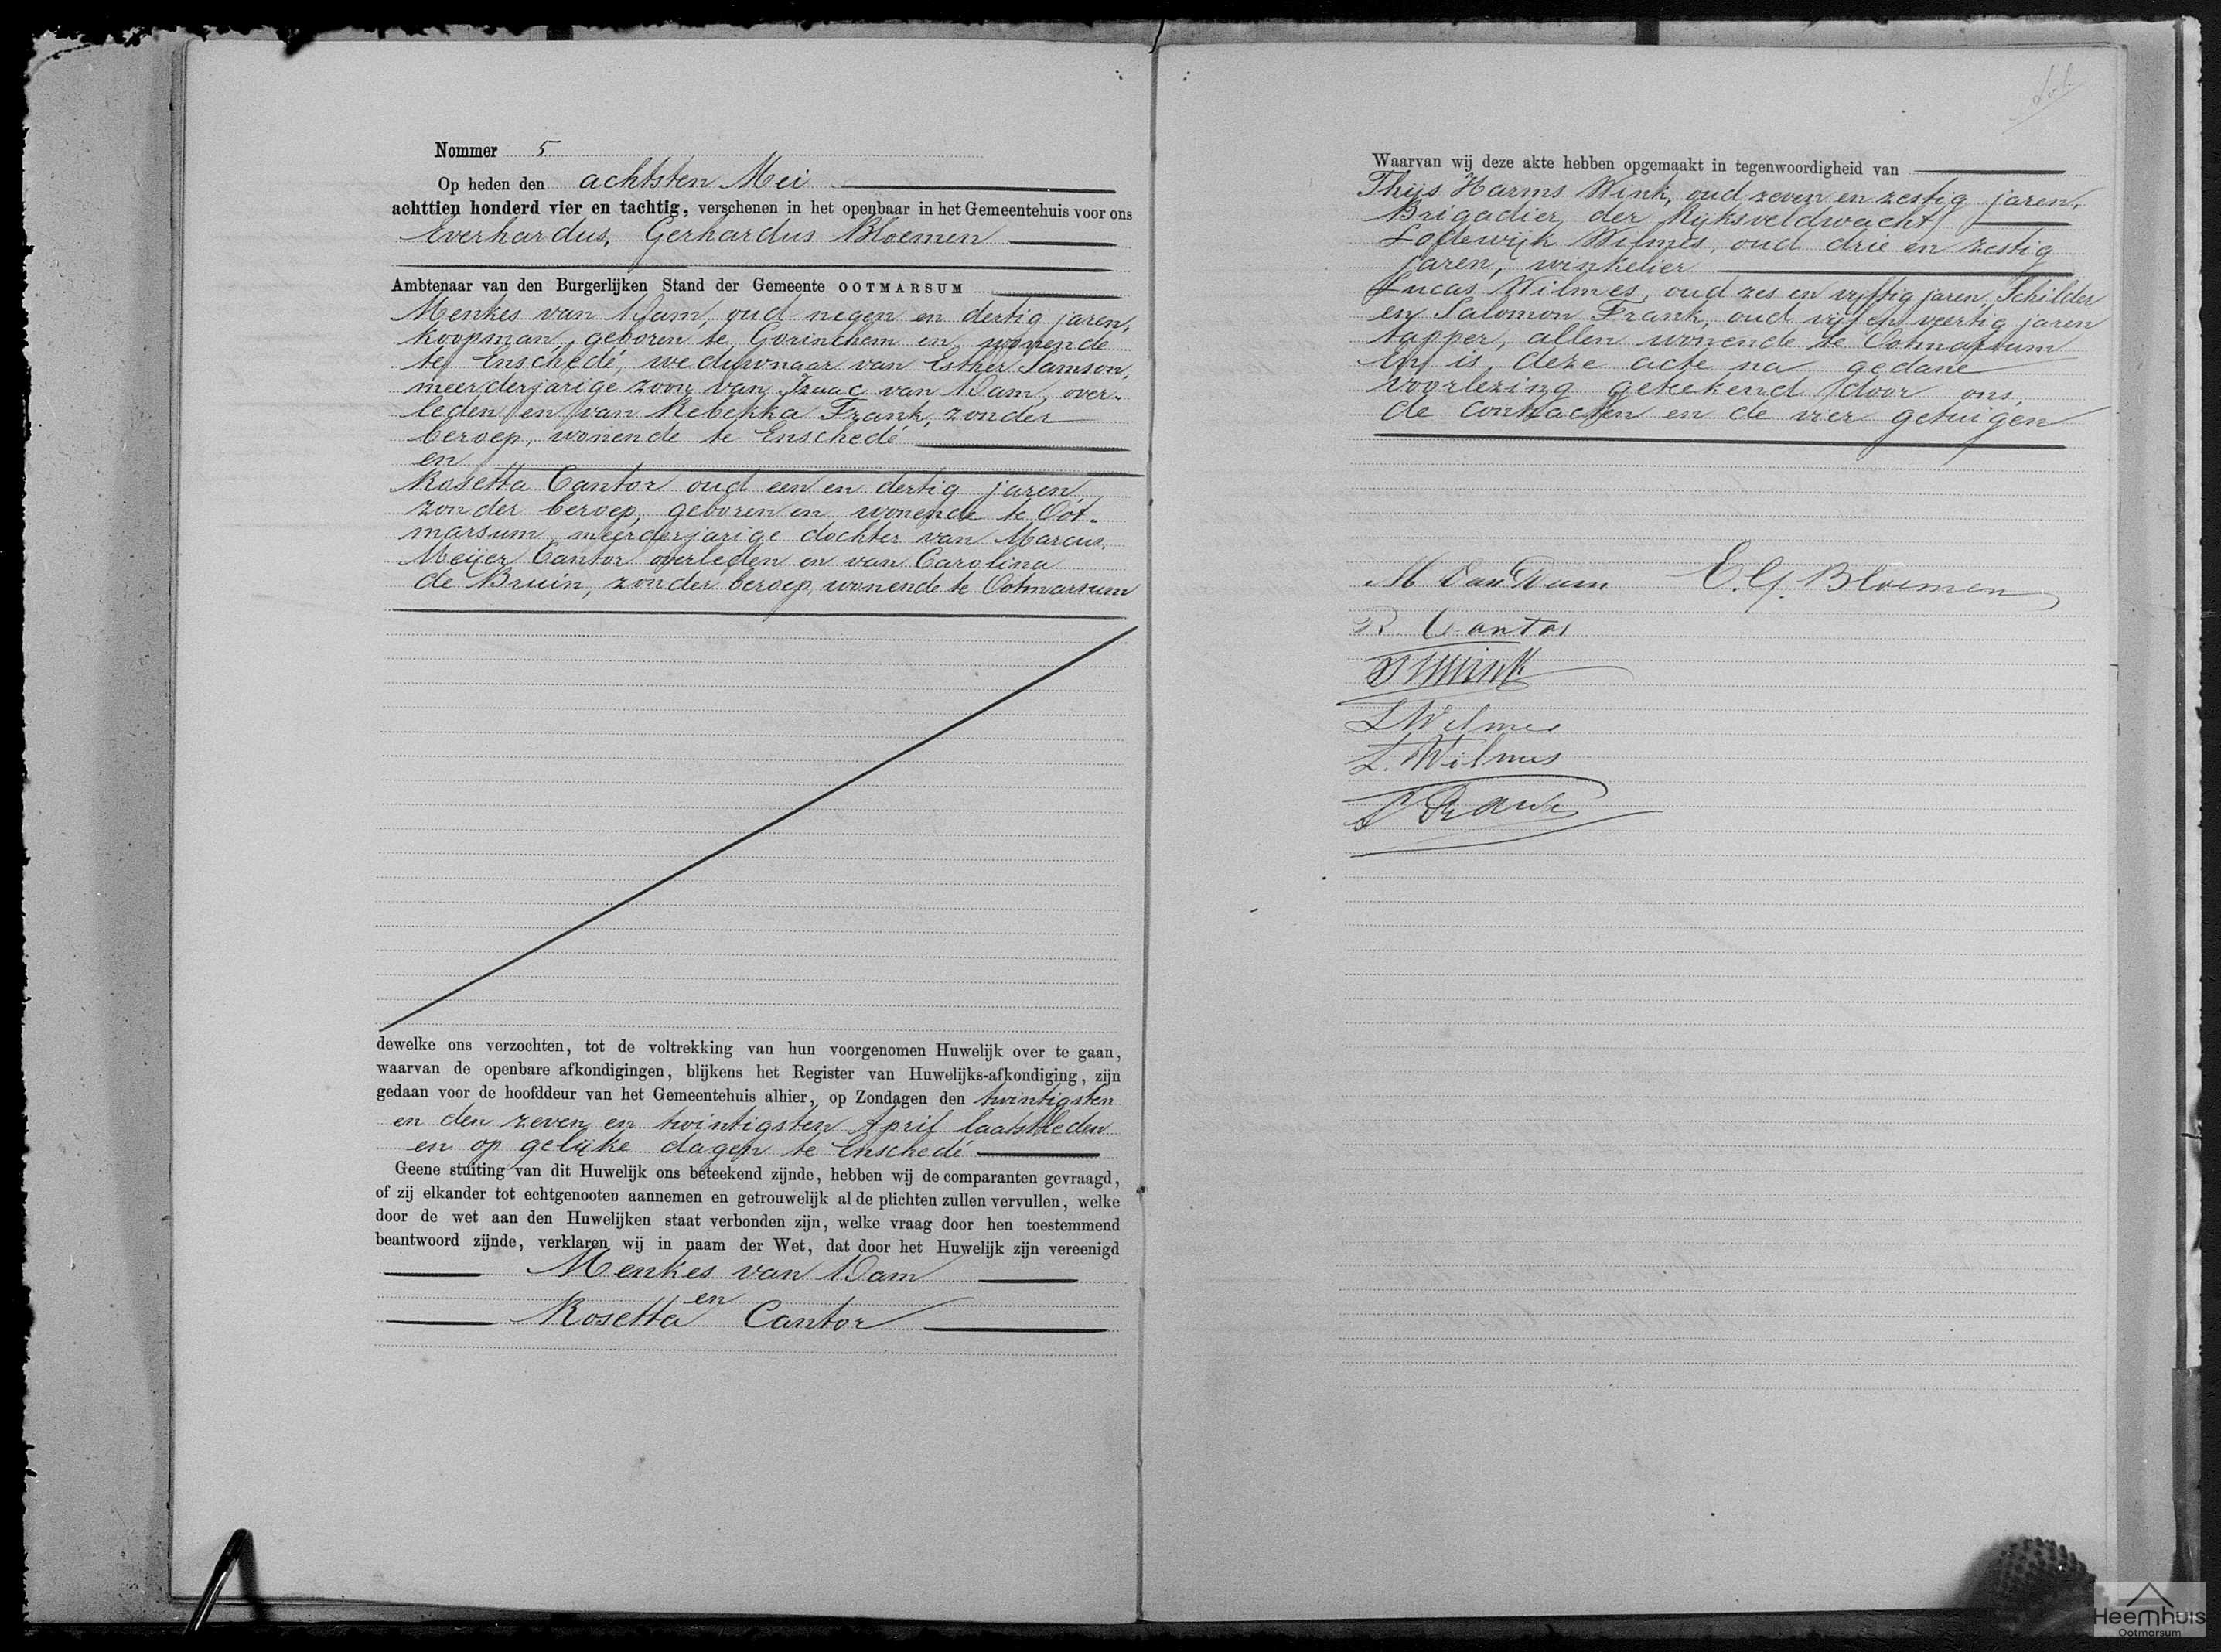 Nommer 5
Op heden den achtsten Mei
achttien honderd vier en tachtig, verschenen in het openbaar in het Gemeentehuis voor ons
Everhardus, Gerhardus Bloemen
Ambtenaar van den Burgerlijken Stand der Gemeente OOTMARSUM
Menkes van Dam, oud negen en dertig jaren,
koopman, geboren te Gorinchem en wonende
te Enschedé, weduwnaar van Esther Samson,
meerderjarige zoon van Izaac van Dam, over-
leden en van Rebekka Frank, zonder
beroep, wonende te Enschedé
en
Rosetta Cantor oud een en dertig jaren
zonder beroep, geboren en wonende te Oot-
marsum, meerderjarige dochter van Marcus,
Meijer Cantor overleden en van Carolina
de Bruin, zonder beroep, wonende te Ootmarsum
dewelke ons verzochten, tot de voltrekking van hun voorgenomen Huwelijk over te gaan,
waarvan de openbare afkondigingen, blijkens het Register van Huwelijks-afkondiging, zijn
gedaan voor de hoofddeur van het Gemeentehuis alhier, op Zondagen den twintigsten
en den zeven en twintigsten April laatstleden
en op gelijke dagen te Enschedé
Geene stuiting van dit Huwelijk ons beteekend zijnde, hebben wij de comparanten gevraagd,
of zij elkander tot echtgenooten aannemen en getrouwelijk al de plichten zullen vervullen, welke
door de wet aan den Huwelijken staat verbonden zijn, welke vraag door hen toestemmend
beantwoord zijnde, verklaren wij in naam der Wet, dat door het Huwelijk zijn vereenigd
Menkes van Dam
en
Rosetta Cantor
Waarvan wij deze akte hebben opgemaakt in tegenwoordigheid van
Thijs Harms Wink, oud zeven en zestig jaren,
Brigadier der Rijksveldwacht
Lodewijk Wilmes, oud drie en zestig
jaren, winkelier
Lucas Wilmes, oud zes en vijftig jaren, Schilder
en Salomon Frank, oud vijf en veertig jaren
tapper, allen wonende te Ootmarsum
En is deze acte na gedane
voorlezing geteekend door ons,
de contracten en de vier getuigen
M Van Dam E. G. Bloemen
R. Cantor
THWink
L Wilmes
L. Wilmes
S Frank
Heemhuis
Ootmarsum